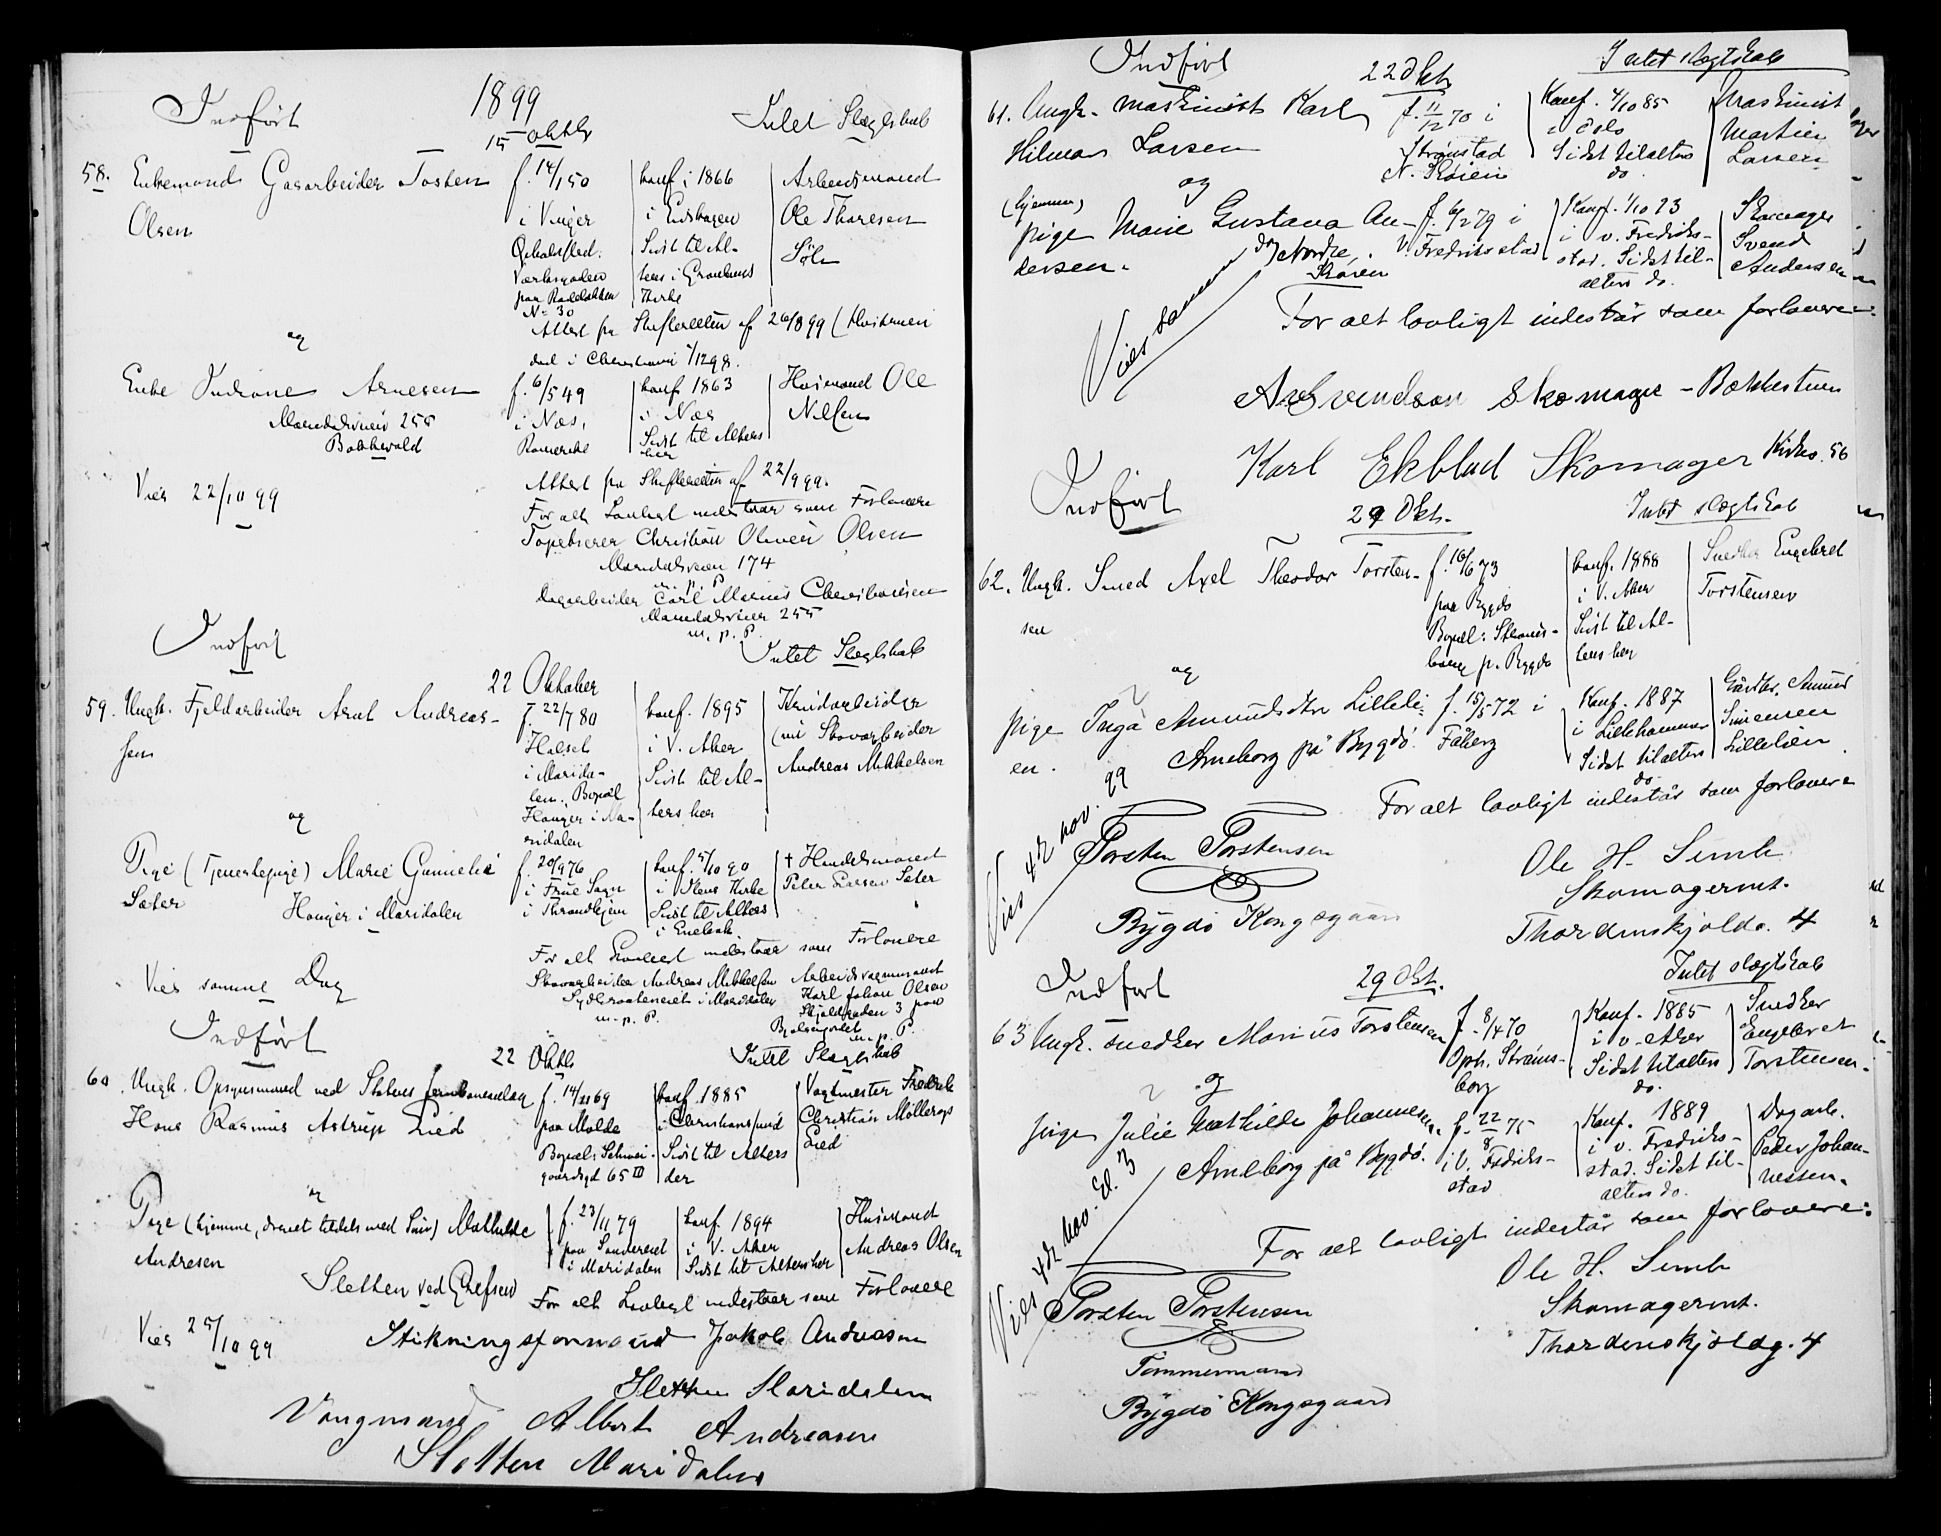 1899
Indført
15 Oktbr
Intet Slægtskab
58. Enkemand Gasarbeider Tosten
Olsen
f. 14/1 50
i Vinger
Værksgaden
paa Rodeløkken
No 30
konf. i 1866
i Eidskogen
Sidst til Al-
ters i Grønlands
Kirke
Arbeidsmand
Ole Thoresen
Attest fra Skifteretten af 26/8 99 (Hustruen
død i Christiania 1/12 98.
og
Enke Indiane Arnesen
Maridalsveien 255
f. 6/5 49
i Næs,
Romerike
konf. 1863
i Næs
Sidst til Alters
her
Husmand Ole
Nilsen
Attest fra Skifteretten af 22/9 99.
Viet 22/10 99
For alt Lovligt indestaar som Forlovere
Tapetserer Christian Oliver Olsen
Maridalsveien 174
m. p. P.
Dagarbeider Carl Marius Christiansen
Maridalsveien 255
m. p. P.
Indført
Intet Slægtskab
22 Oktober
59. Ungk. Fjeldarbeider Arnt Andreas-
sen
f. 22/7 80
i Marida-
len, Bopæl
Hauger i Ma-
ridalen
konf. 1895
i V. Aker
Sidst til Al-
ters her
Krudarbeider
(nu Skovarbeider
Andreas Mikkelsen
og
Pige (Tjenestepige) Marie Gunnelie
Sæter
Hauger i Maridalen
f. 20/9 76
i Frue Sogn
i Throndhjem
konf. 5/10 90
i Ilens Kirke
Sidst til Alters
i Enebak
† Handelsmand
Peter Larsen Sæter
For alt Lovligt indestaar som Forlovere
Skovarbeider Andreas Mikkelsen
m. p. P.
Arbeidsformand
Karl Johan Olsen
m. p. P.
Viet samme Dag
Indført
22 Oktb
Intet Slægtskab
60. Ungk. Opsynsmand ved Statens Jernbaneanlæg
Hans Rasmus Astrup Lied
f. 14/11 69
paa Molde
Bopæl: Schwei-
gaardsgd 65 III
konf. 1885
i Christianssund
Sidst til Alters
der
Vagtmester Fredrik
Christian Møllerop
Lied
og
Pige (hjemme, ernæret tildels med Søm) Mathilde
Andresen
Sletten ved Grefsen
f. 23/11 79
i Maridalen
konf. 1894
i V. Aker
Sidst til Alters her
Husmand
Andreas Olsen
For alt Lovligt indestaar som Forlovere
Viet 25/10 99
Stikningsformand Jakob Andreasen
Sletten Maridalen
Vongmand Albert Andreasen
Sletten Maridalen
Indført
22 Okt.
Intet slægtskab
61. Ungk. maskinist Karl
Hilmar Larsen
f. 11/12 70 i
Strømstad
N. Skøien
Konf. 4/10 85
i Oslo
Sidst tilalters
do.
Maskinist
Martin
Larsen
og
(hjemme)
pige Marie Gustava An-
dersen.
Nordre
Skøien
f. 6/2 79 i
V. Fredriksstad
Konf. 1/10 93
i v. Fredriks-
stad. Sidst til-
alters do.
Skomager
Svend
Andersen
Viet samme dag
For alt lovligt indestår som forlovere:
A. Svendsen Skomager - Bækkestuen
Karl Ekblad Skomager Kirkev. 56
Indført
29 Okt.
Intet slægtskab
62. Ungk. Smed Axel Theodor Torsten-
sen
f. 16/6 73
paa Bygdø
Bopæl: Strøms-
borg p. Bygdø
konf. 1888
i V. Aker
Sidst til Al-
ters her
Snedker Engebret
Torstensen
og
pige Inga Amundsdtr Lilleli-
en.
Arneborg på Bygdø.
f. 15/5 72 i
Fåberg
Konf. 1887
i Lillehammer
Sidst tilalters
do.
Gårdbr. Amund
Simensen
Lillelien
Viet 4de nov. 99
For alt lovligt indestår som forlovere
Torsten Torstensen
Bygdø Kongsgaard
Ole H. Semb
Skomagermt.
Thordenskjoldg. 4
Indført
29 Okt.
Intet slægtskab
63 Ungk. snedker Marius Torstensen
f. 8/4 70
Oph. Strøms-
borg
Konf. 1885
i v. Aker
Sidst tilalters
do.
Snedker
Engebret
Torstensen.
og
pige Julie Mathilde Johannesen.
Arneborg på Bygdø.
f. 22/8 75
i V. Fredriks-
stad
Konf. 1889
i v. Fredriks-
stad. Sidst til-
alters do.
Dagarb.
Peder Johan-
nessen.
Viet 4de nov. kl. 3
For alt lovligt indestår som forlovere:
Torsten Torstensen
Tømmermand
Bygdø Kongsgaard
Ole H. Semb
Skomagermt.
Thordenskjoldg. 4